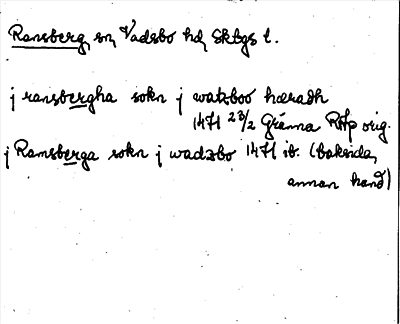 Ransberg sn, Vadsbo hd, Skbgs l.
j ransbergha sokn j watzboo hæradh
1471 23/2 Gränna RAp orig.
j Ramsberga sokn j wadzbo 1471 ib. (baksida,
annan hand)